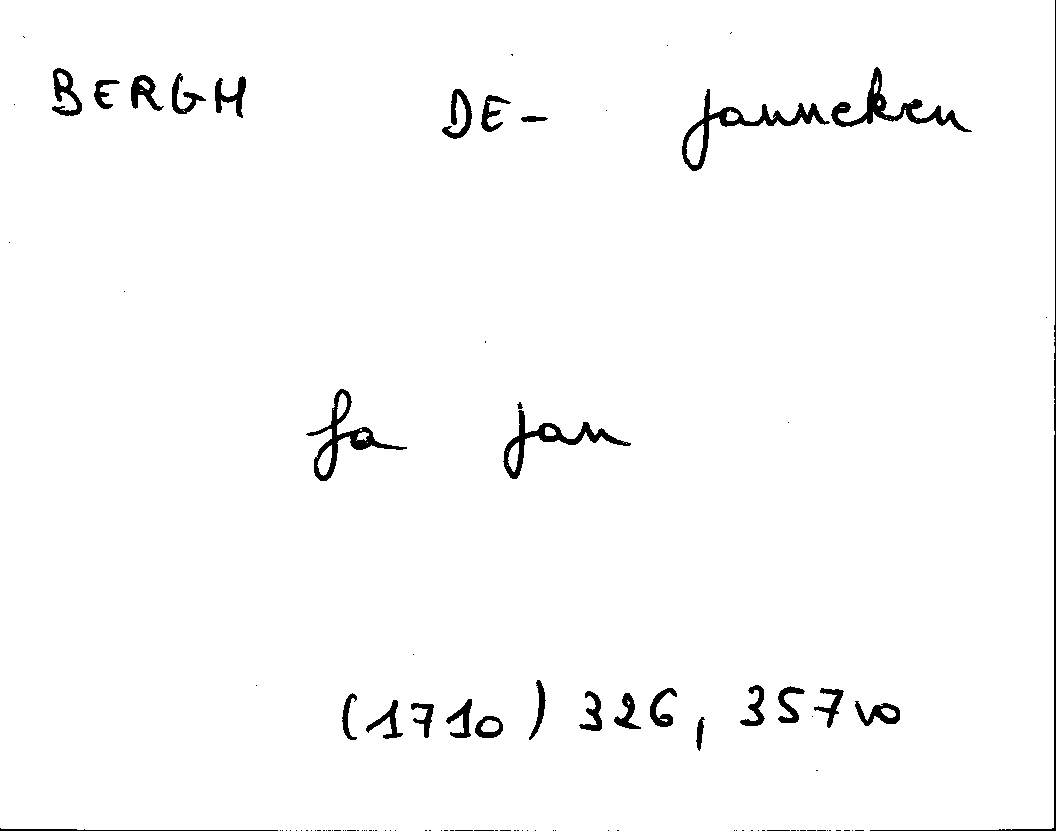 BERGH DE- Janneken
fa Jan
(1710) 326, 357vo